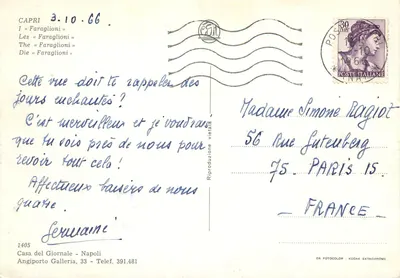 CAPRI 3.10.66
I « Faraglioni »
Les « Faraglioni »
The « Faraglioni »
Die « Faraglioni »
Cette vue doit te rappeler des
jours enchantés !
C'est merveilleux et je voudrais
que tu sois près de nous pour
revoir tout cela !
Affectueux baisers de nous
quatre.
Germaine
1405
Casa del Giornale - Napoli
Angiporto Galleria, 33 - Telef. 391.481
Riproduzione vietata
30
POSTE ITALIANE
Madame Simone Ragiot
56 Rue Gutenberg
75. PARIS 15.
- FRANCE -